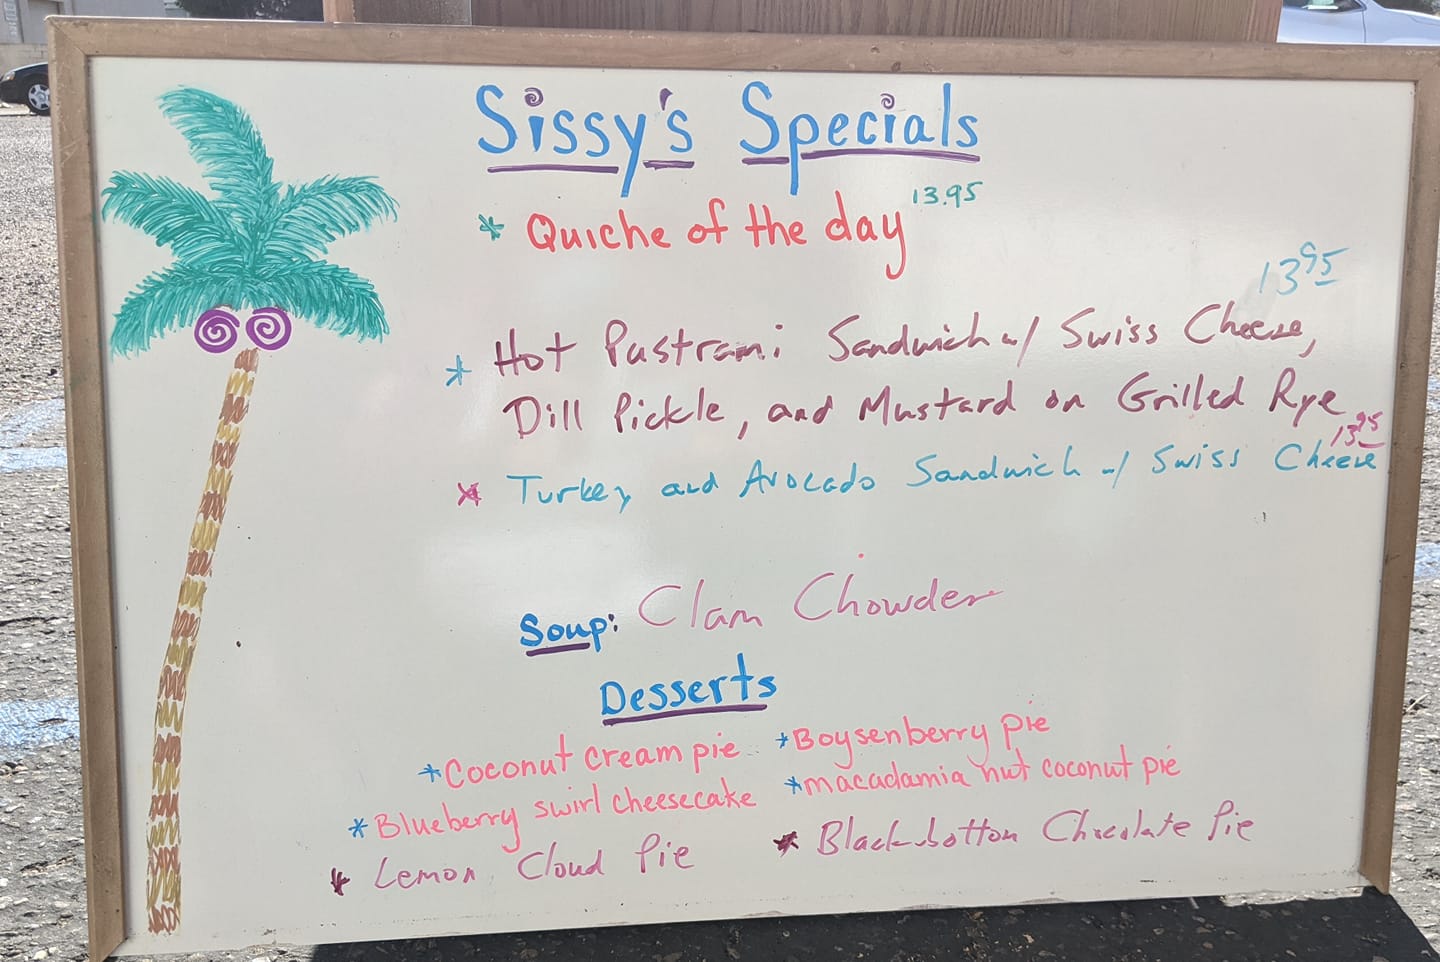 Sissy's Specials
* Quiche of the day 13.95
13.95
* Hot Pastrami Sandwich w/ Swiss Cheese,
Dill Pickle, and Mustard on Grilled Rye
13.95
* Turkey and Avocado Sandwich w/ Swiss Cheese
Soup: Clam Chowder
Desserts
* Coconut cream pie * Boysenberry pie
* Blueberry swirl cheesecake * macadamia nut coconut pie
* Lemon Cloud Pie * Black-bottom Chocolate Pie